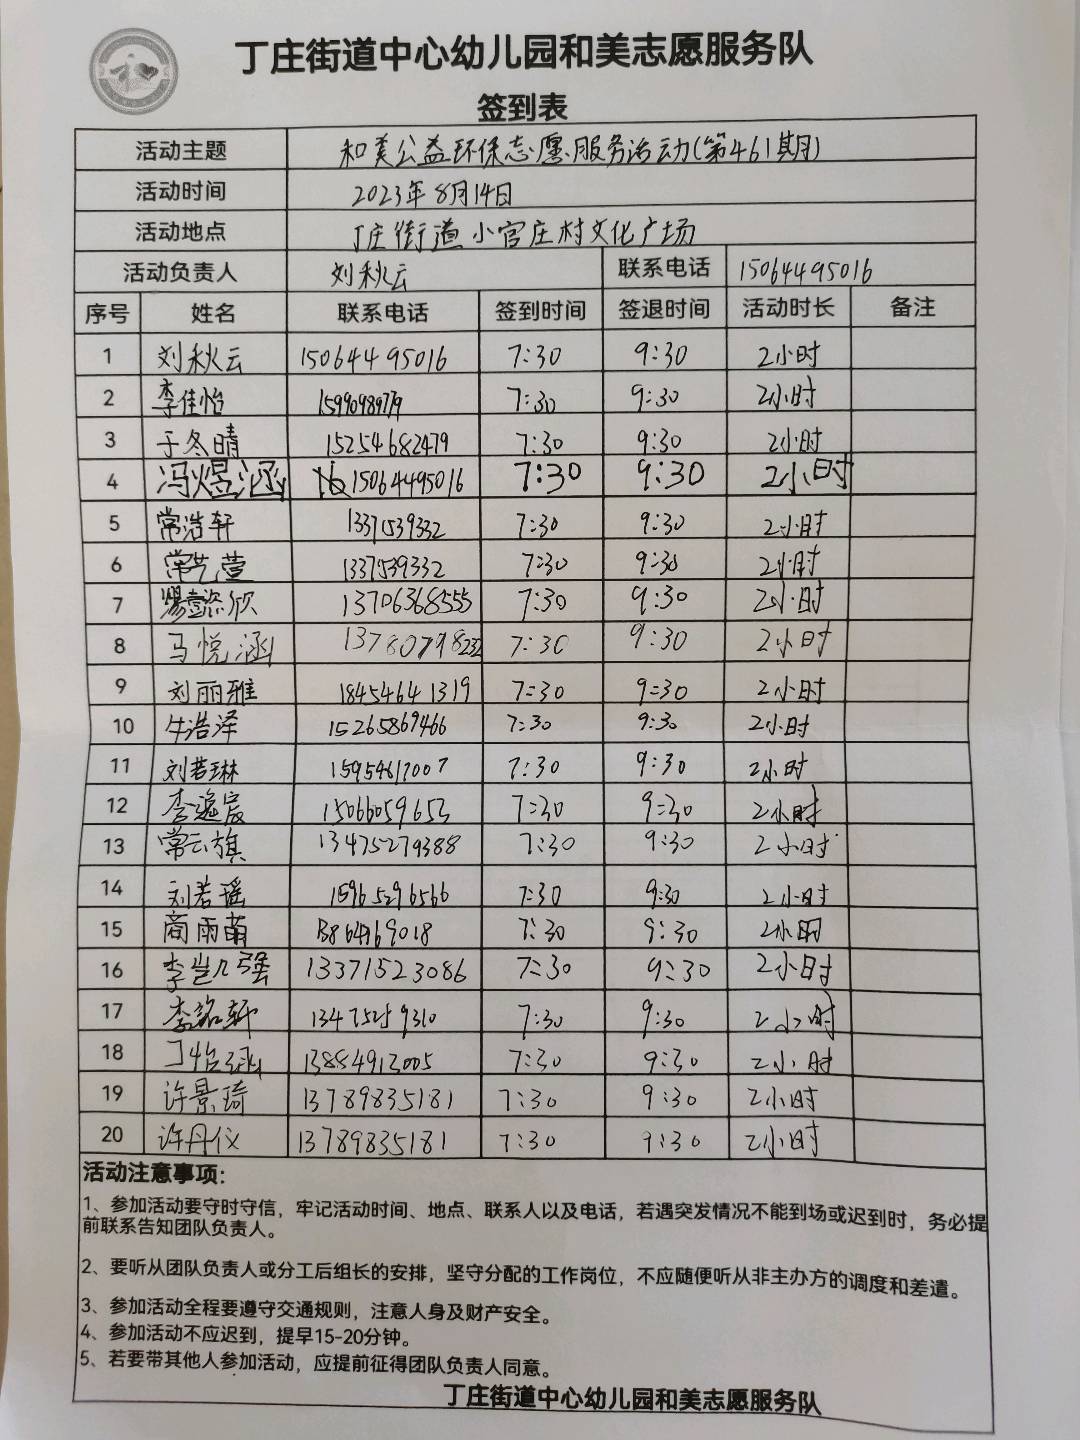 丁庄街道中心幼儿园和美志愿服务队
签到表
活动主题 和美公益环保志愿服务活动(第461期)
活动时间 2023年8月14日
活动地点 丁庄街道小官庄村文化广场
活动负责人 刘秋云 联系电话 15064495016
序号 姓名 联系电话 签到时间 签退时间 活动时长 备注
1 刘秋云 15064495016 7:30 9:30 2小时
2 李佳怡 15990989779 7:30 9:30 2小时
3 于冬晴 15254682479 7:30 9:30 2小时
4 冯煜涵 15064495016 7:30 9:30 2小时
5 常浩轩 13371539332 7:30 9:30 2小时
6 常艺萱 13371539332 7:30 9:30 2小时
7 13706368555 7:30 9:30 2小时
8 马悦涵 13780798232 7:30 9:30 2小时
9 刘丽雅 18454641319 7:30 9:30 2小时
10 牛浩泽 15265869466 7:30 9:30 2小时
11 刘若琳 15954613007 7:30 9:30 2小时
12 李逸宸 15066059653 7:30 9:30 2小时
13 常云旗 13475279388 7:30 9:30 2小时
14 刘若瑶 15965296566 7:30 9:30 2小时
15 商雨萌 7:30 9:30 2小时
16 李岂凡强 13371523086 7:30 9:30 2小时
17 李铭轩 13475259310 7:30 9:30 2小时
18 丁怡涵 13884913005 7:30 9:30 2小时
19 许景琦 13789835181 7:30 9:30 2小时
20 许丹仪 13789835181 7:30 9:30 2小时
活动注意事项：
1、参加活动要守时守信，牢记活动时间、地点、联系人以及电话，若遇突发情况不能到场或迟到时，务必提
前联系告知团队负责人。
2、要听从团队负责人或分工后组长的安排，坚守分配的工作岗位，不应随便听从非主办方的调度和差遣。
3、参加活动全程要遵守交通规则，注意人身及财产安全。
4、参加活动不应迟到，提早15-20分钟。
5、若要带其他人参加活动，应提前征得团队负责人同意。
丁庄街道中心幼儿园和美志愿服务队